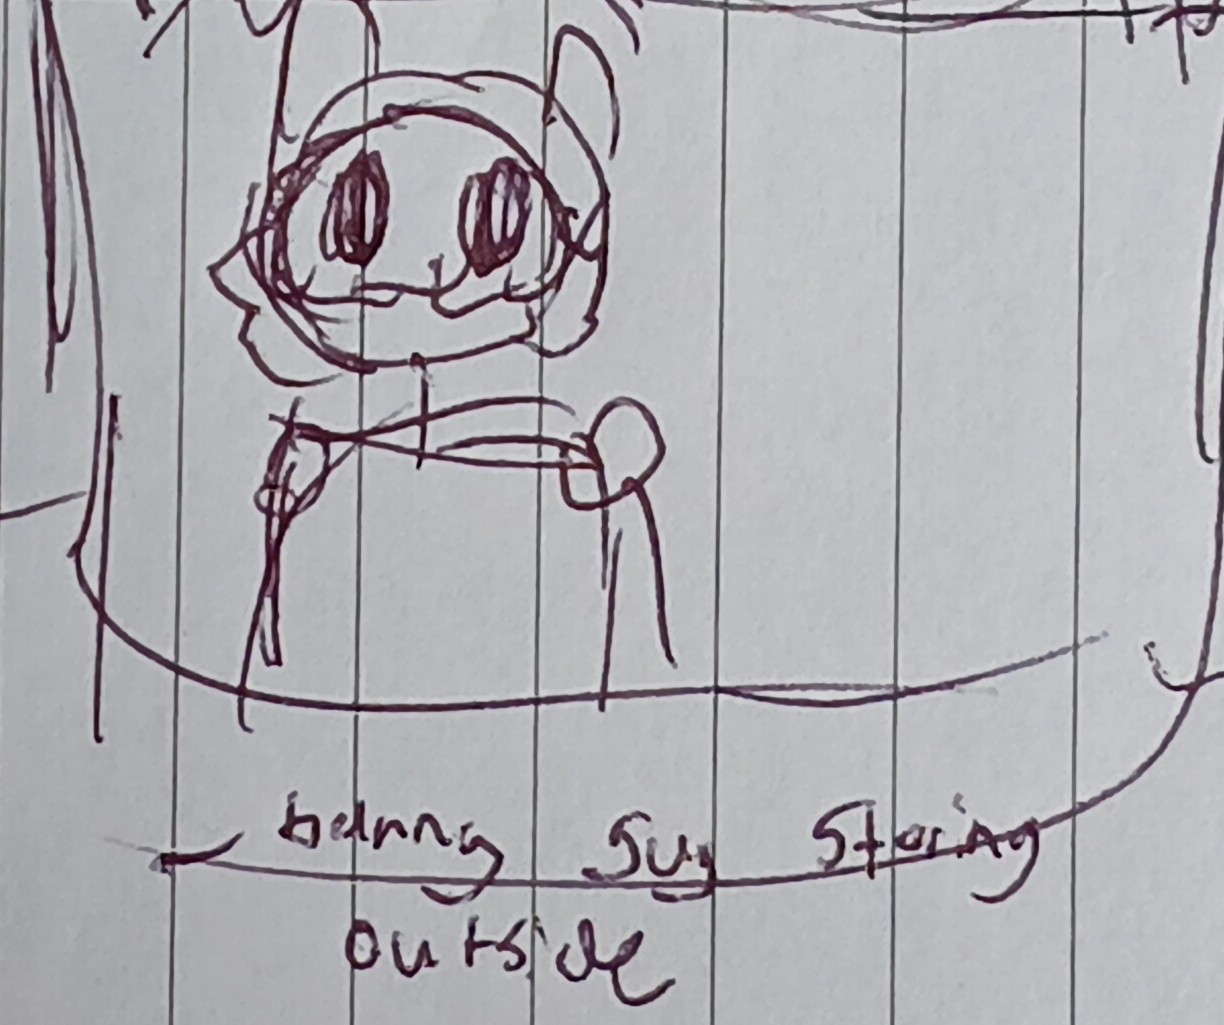 bunny guy staring
outside